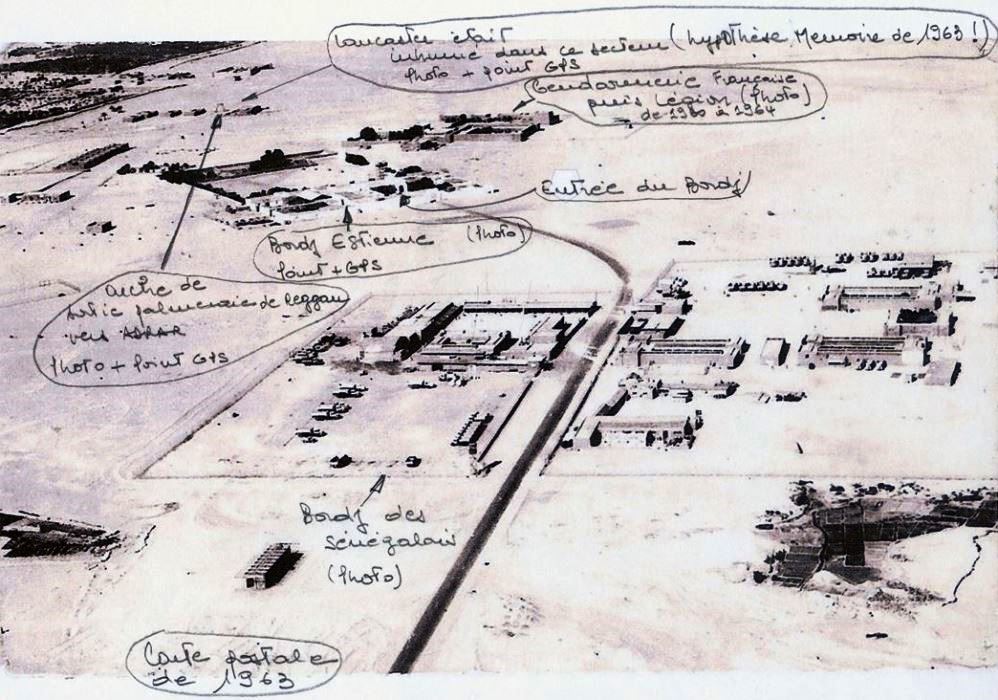 Lancaster était
inhumé dans ce secteur (hypothèse Memoire de 1963 !)
Photo + point GPS
Gendarmerie Française
puis Légion (Photo)
de 1960 à 1964
Entrée du Bordj
Bordj Estienne (Photo)
Point + GPS
Arche de
sortie palmeraie de Reggan
vers ADRAR
Photo + Point GPS
Bordj des
Sénégalais
(Photo)
Carte postale
de 1963